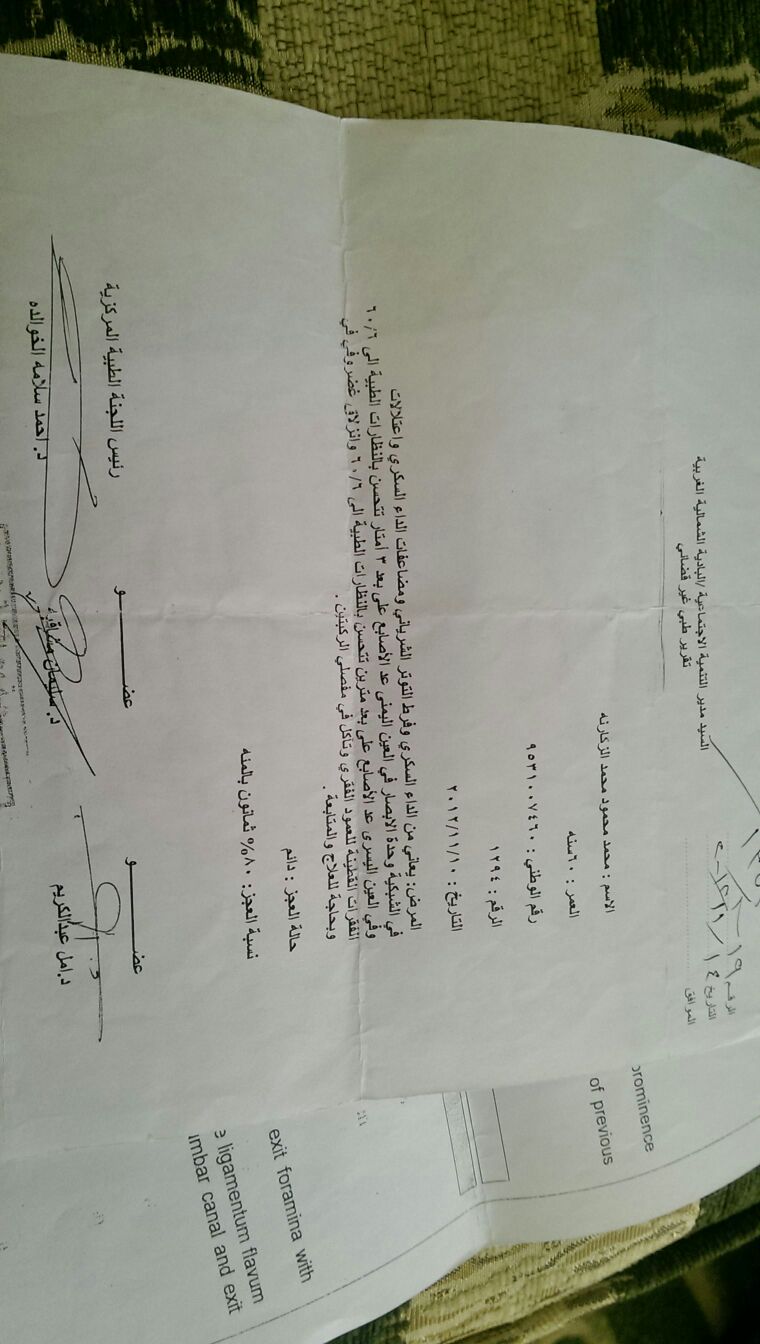 الرقم
التاريخ
الموافق
السيد مدير التنمية الاجتماعية /البادية الشمالية الغربية
تقرير طبي غير قضائي
الاسم : محمد محمود محمد الزكارنه
العمر : ٦٠سنه
رقم الوطني : ٩٥٣١٠٠٧٤٦٠
الرقم : ١٢٩٤
التاريخ : ٢٠١٢/١١/١٠
المرض: يعاني من الداء السكري وفرط التوتر الشرياني ومضاعفات الداء السكري واعتلالات
في الشبكية وحدة الابصار في العين اليمنى عد الأصابع على بعد ٣ أمتار تتحسن بالنظارات الطبية الى ٦٠/٦
وفي العين اليسرى عد الأصابع على بعد مترين تتحسن بالنظارات الطبية الى ٦٠/٦ وانزلاق غضروفي في
الفقرات القطنية للعمود الفقري وتآكل في مفصلي الركبتين .
وبحاجة للعلاج والمتابعة .
حالة العجز : دائم
نسبة العجز : ٨٠% ثمانون بالمئه
عضـــــو
عضـــــو
رئيس اللجنة الطبية المركزية
د.امل عبدالكريم
د. سليمان مشاقبه
د. احمد سلامه الخوالده
prominence
of previous
exit foramina with
ligamentum flavum
canal and exit